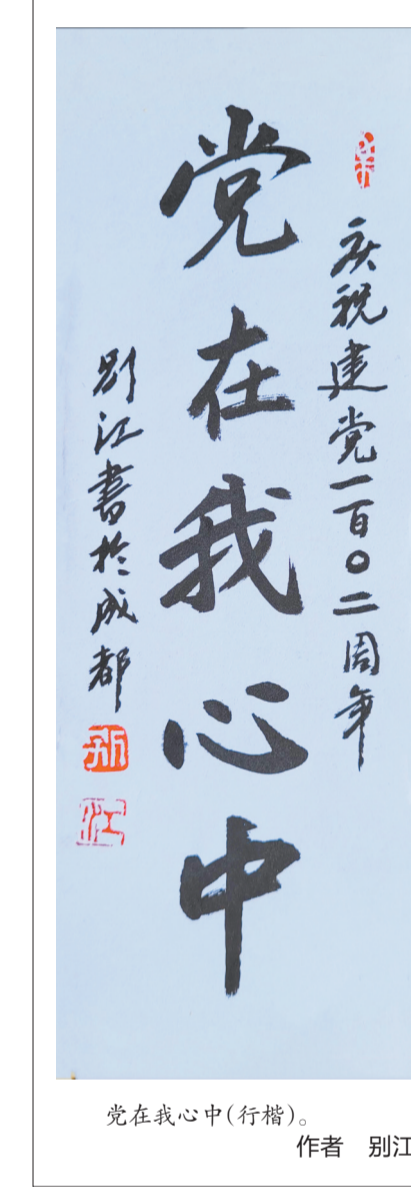 庆祝建党一百〇二周年
党在我心中
别江書於成都
别
江
党在我心中(行楷)。
作者 别江